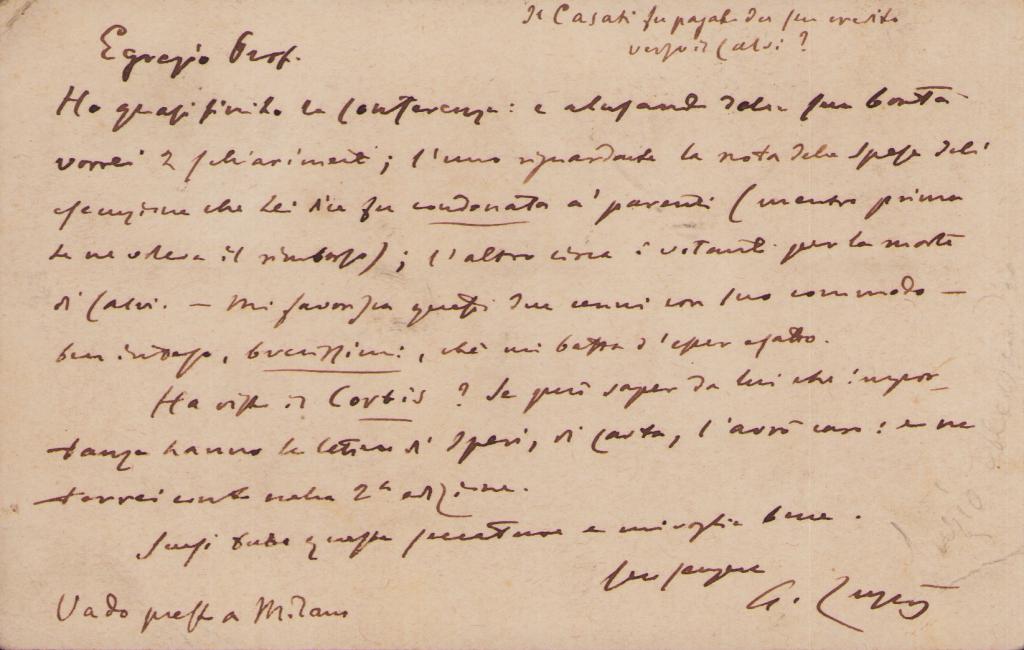 Il Casati fu pagato del suo credito
verso il Calvi?
Egregio Prof.
Ho quasi finito la conferenza: e abusando della sua bontà
vorrei 2 schiarimenti; l'uno riguardante la nota delle spese dell'
esecuzione che Lei dice fu condonata a' parenti (mentre prima
se ne voleva il rimborso); l'altro circa i votanti per la morte
di Calvi. — Mi favorisca questi due cenni con suo commodo —
ben inteso, brevissimi, chè mi basta d'esser esatto.
Ha visto il Corbis? Se può saper da lui che impor-
tanza hanno le lettere di Speri, di carta, l'avrò caro: e ne
terrei conto nella 2ª edizione.
Scusi tutte queste seccature e mi voglia bene.
suo sempre
A.
Vado presto a Milano